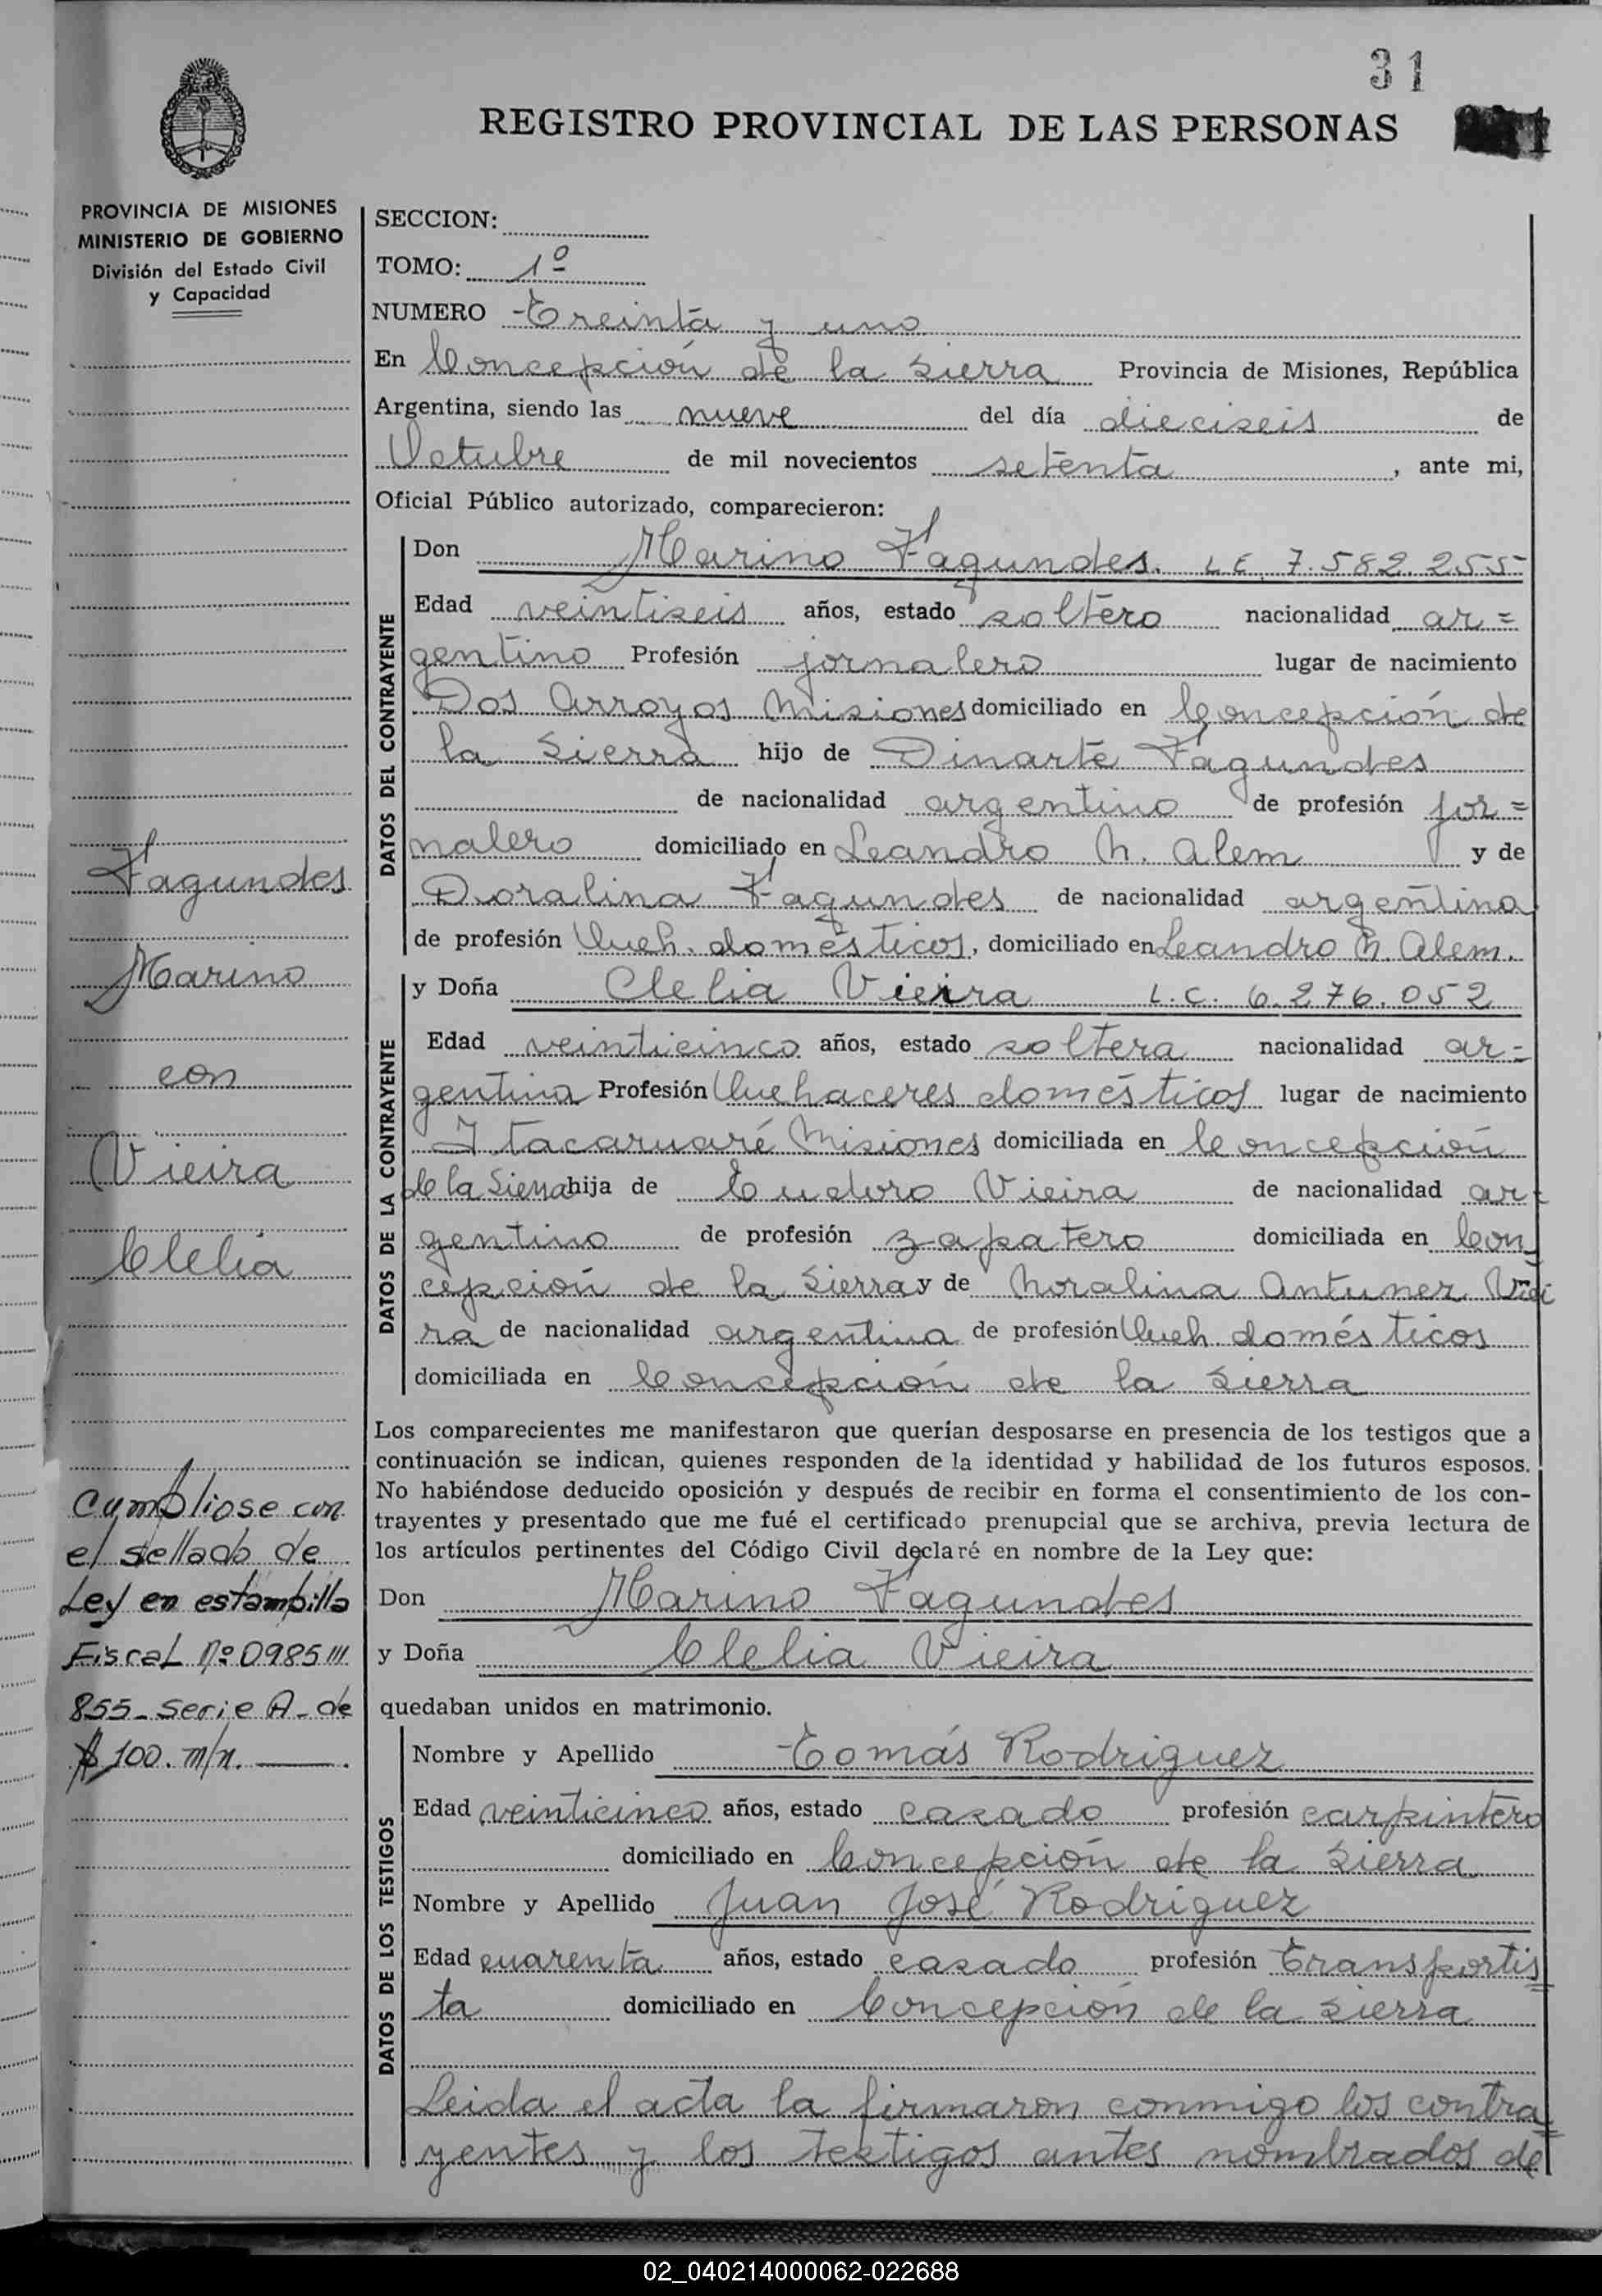 31
REGISTRO PROVINCIAL DE LAS PERSONAS
PROVINCIA DE MISIONES
MINISTERIO DE GOBIERNO
División del Estado Civil
y Capacidad
Fagundes
Marino
con
Vieira
Clelia
Cumpliose con
el sellado de
Ley en estampilla
Fiscal Nº 0985111
855 - Serie A - de
$ 100. m/n.
SECCION:
TOMO: 1º
NUMERO Treinta y uno
En Concepción de la Sierra Provincia de Misiones, República
Argentina, siendo las nueve del día dieciseis de
Octubre de mil novecientos setenta, ante mi,
Oficial Público autorizado, comparecieron:
DATOS DEL CONTRAYENTE
Don Marino Fagundes. L E. 7.582.255
Edad veintiseis años, estado soltero nacionalidad ar=
gentino Profesión jornalero lugar de nacimiento
Dos Arroyos Misiones domiciliado en Concepción de
la Sierra hijo de Dinarte Fagundes
de nacionalidad argentino de profesión jor=
nalero domiciliado en Leandro N. Alem y de
Doralina Fagundes de nacionalidad argentina
de profesión Queh. domésticos, domiciliado en Leandro N. Alem.
DATOS DE LA CONTRAYENTE
y Doña Clelia Vieira L.C. 6.276.052
Edad veinticinco años, estado soltera nacionalidad ar=
gentina Profesión Quehaceres domésticos lugar de nacimiento
Itacaruaré Misiones domiciliada en Concepción
de la Sierra hija de Eudoro Vieira de nacionalidad ar=
gentino de profesión zapatero domiciliada en Con
cepción de la Sierra y de Noralina Antunez Viei
ra de nacionalidad argentina de profesión Queh domésticos
domiciliada en Concepción de la Sierra
Los comparecientes me manifestaron que querían desposarse en presencia de los testigos que a
continuación se indican, quienes responden de la identidad y habilidad de los futuros esposos.
No habiéndose deducido oposición y después de recibir en forma el consentimiento de los con-
trayentes y presentado que me fué el certificado prenupcial que se archiva, previa lectura de
los artículos pertinentes del Código Civil declaré en nombre de la Ley que:
Don Marino Fagundes
y Doña Clelia Vieira
quedaban unidos en matrimonio.
DATOS DE LOS TESTIGOS
Nombre y Apellido Tomás Rodriguez
Edad veinticinco años, estado casado profesión carpintero
domiciliado en Concepción de la Sierra
Nombre y Apellido Juan José Rodriguez
Edad cuarenta años, estado casado profesión Transportis
ta domiciliado en Concepción de la Sierra
Leida el acta la firmaron conmigo los contra
yentes y los testigos antes nombrados de
02_040214000062-022688